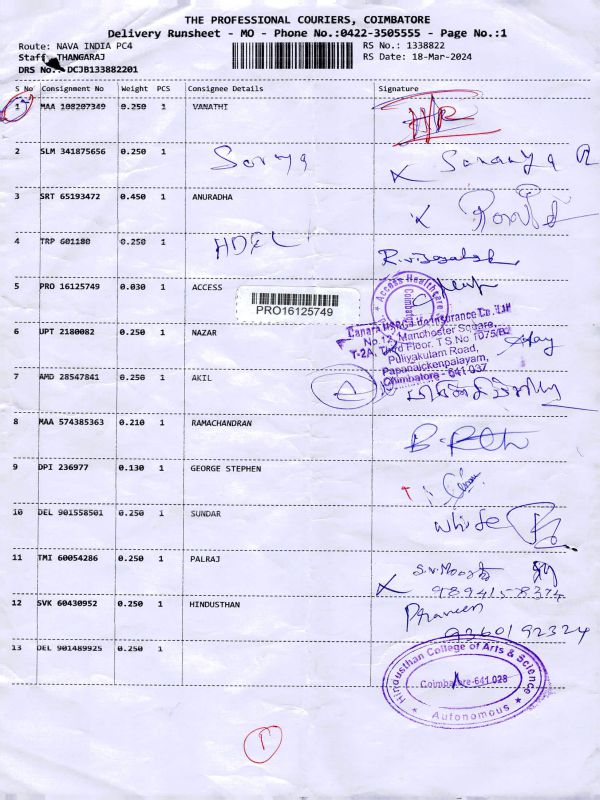 THE PROFESSIONAL COURIERS, COIMBATORE
Delivery Runsheet - MO - Phone No.:0422-3505555 - Page No.:1
Route: NAVA INDIA PC4
RS No.: 1338822
Staff THANGARAJ
RS Date: 18-Mar-2024
DRS No.: DCJB133882201
S No Consignment No Weight PCS Consignee Details Signature
1 MAA 108207349 0.250 1 VANATHI
2 SLM 341875656 0.250 1 Sorya
3 SRT 65193472 0.450 1 ANURADHA
4 TRP 601180 0.250 1 HDFC
5 PRO 16125749 0.030 1 ACCESS
PRO16125749
Access Healthcare
Coimbatore
6 UPT 2180082 0.250 1 NAZAR
Canara HSBC Life Insurance Co. Ltd
No.12, Manchester Square,
T-2A, Third Floor, T.S No 1075/B2
Puliyakulam Road,
Papanaickenpalayam,
Coimbatore - 641 037
7 AMD 28547841 0.250 1 AKIL
8 MAA 574385363 0.210 1 RAMACHANDRAN
9 DPI 236977 0.130 1 GEORGE STEPHEN
10 DEL 901558501 0.250 1 SUNDAR
White
11 TMI 60054286 0.250 1 PALRAJ
9894158374
12 SVK 60430952 0.250 1 HINDUSTHAN
Praveen
9360192324
13 DEL 901489925 0.250 1
Hindusthan College of Arts & Science
Coimbatore-641 028
Autonomous